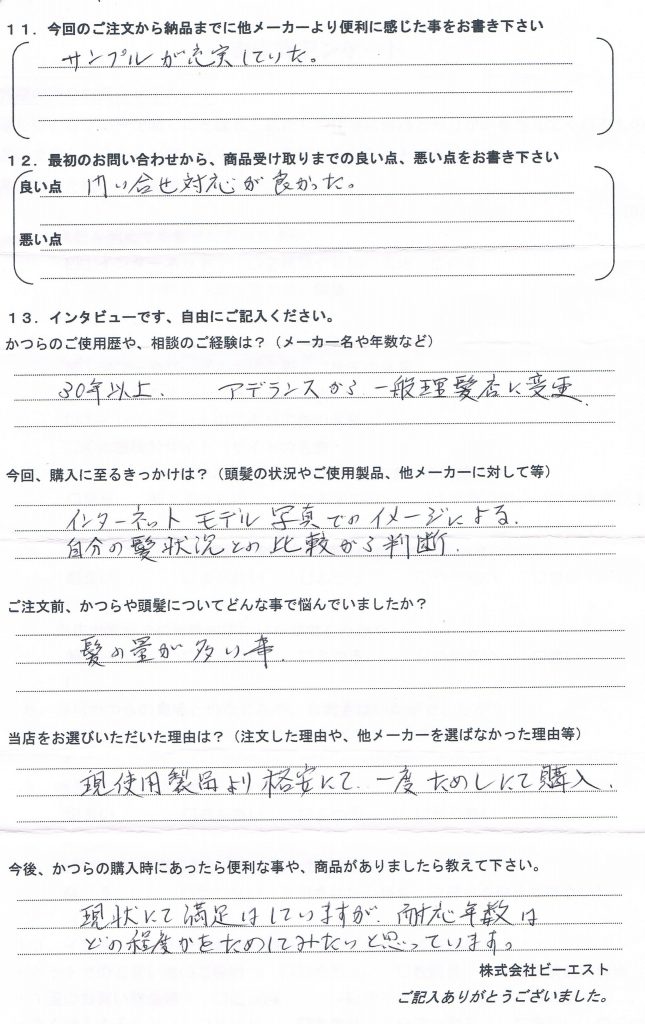 11．今回のご注文から納品までに他メーカーより便利に感じた事をお書き下さい
サンプルが充実していた。
12．最初のお問い合わせから、商品受け取りまでの良い点、悪い点をお書き下さい
良い点 問い合せ対応が良かった。
悪い点
13．インタビューです、自由にご記入ください。
かつらのご使用歴や、相談のご経験は？（メーカー名や年数など）
30年以上． アデランスから一般理髪店に変更．
今回、購入に至るきっかけは？（頭髪の状況やご使用製品、他メーカーに対して等）
インターネットモデル写真でのイメージによる．
自分の髪状況との比較から判断．
ご注文前、かつらや頭髪についてどんな事で悩んでいましたか？
髪の量が多い事．
当店をお選びいただいた理由は？（注文した理由や、他メーカーを選ばなかった理由等）
現使用製品より格安にて．一度ためしにて購入．
今後、かつらの購入時にあったら便利な事や、商品がありましたら教えて下さい。
現状にて満足はしていますが．耐応年数は
どの程度かをためしてみたいと思っています。
株式会社ビーエスト
ご記入ありがとうございました。